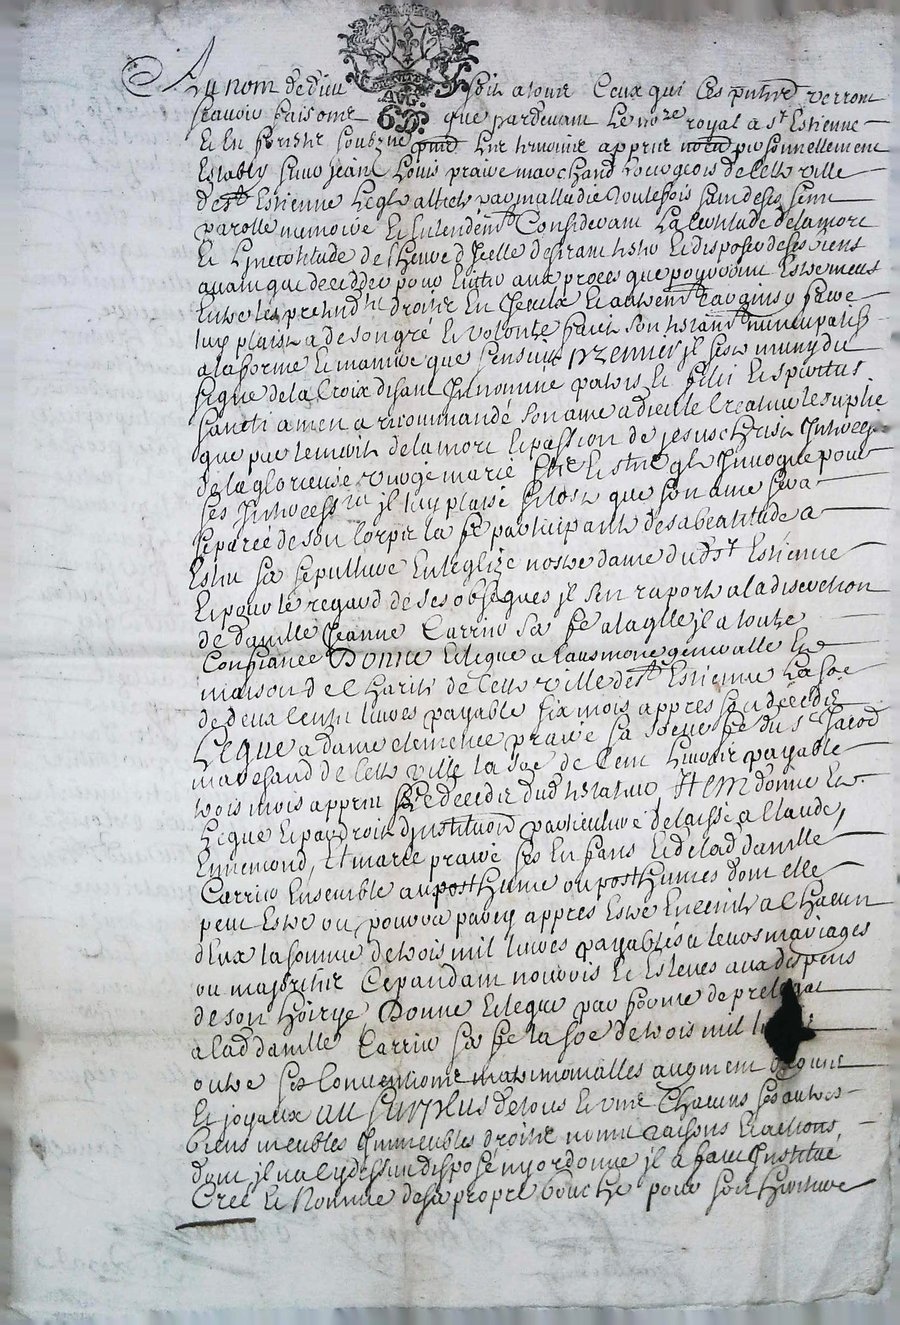 Au nom de dieu soit a tous Ceux qui Ces pntes verront
scavoir faisons que pardevant Le no.re royal a s.t Estienne
Et En pnce
Estably sieur jean Louis praire marchand bourgeois de cette ville
de s.t Estienne Leql allicté par maladie toutesfois sain de ses sens
parolle memoire Et Entendem.t Considerant La Certitude de la mort
Et L'incertitude de l'heure d'Icelle desirant tester Et disposer de ses biens
avant que deceder pour Eviter aux proces que pourroint Estre meus
Entre les pretend.ts droits En Iceux
luy plaist a de son gré Et volonté faict son testam.t nuncupatif
a la forme Et maniere que sensuit premier il sest muny du
signe de la Croix disant In nomine patris Et filii Et spiritus
sancti amen a recommandé son ame a dieu le Createur le suplie
que par le merite de la mort Et passion de jesus christ
de la glorieuse vierge marie
il luy plaise sitost que son ame sera
separée de son Corps la fe participante de sa beatitude a
Esleu sa sepulture En leglize nostre dame dud s.t Estienne
Et pour le regard de ses obseques il sen raporte a la discretion
de d.amlle Jeanne Carrier sa fe a laqlle il a toute
Confiance Donne Et legue a laumone generalle Et
maison de Charité de Cette ville de s.t Estienne La soe
de deux Cents livres payable six mois appres son decedz
Legue a dame clemence praire sa soeur fe du s.r Jacod
marchand de Cette ville la soe de Cent livres payable
trois mois appres le decedz dud testateur Item donne Et
Legue Et par droit d'institution particuliere delaisse a Claude,
Ennemond, Et marie praire ses Enfans Et de lad damlle
Carrier Ensemble au posthume ou posthumes dont elle
peut Estre ou pourra par cy appres Estre Enceinte a Chacun
d'Eux la somme de trois mil livres payables a leurs mariages
ou majorités Cependant nourris Et Esleves aux despens
de son hoirye Donne Et legue par forme de prelegat
a lad damlle Carrier sa fe la soe de trois mil
outre ses Conventions matrimonialles augment
Et joyaux au surplus de tous Et uns Chacuns ses autres
biens meubles Immeubles droits noms raisons Et actions
dont il na Cy dessus disposé ny ordonné il a faict Institué
Creé Et Nommé de sa propre bouche pour son heritiere